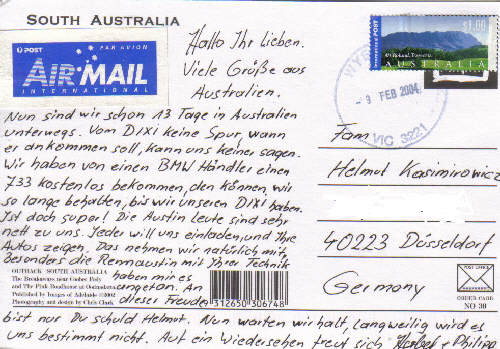 SOUTH AUSTRALIA
POST
PAR AVION
AIR MAIL
INTERNATIONAL
Hallo Ihr Lieben.
Viele Grüße aus
Australien.
Nun sind wir schon 13 Tage in Australien
unterwegs. Vom DIXI keine Spur, wann
er ankommen soll, kann uns keiner sagen.
Wir haben von einen BMW Händler einen
733 kostenlos bekommen, den können, wir
so lange behalten, bis wir unseren DIXI haben.
Ist doch super! Die Austin Leute sind sehr
nett zu uns. Jeder will uns einladen, und Ihre
Autos zeigen. Das nehmen wir natürlich mit,
besonders die Rennaustin mit Ihrer Technik
haben mir es
angetan. An
dieser Freude
bist nur Du schuld Helmut. Nun warten wir halt, Langweilig wird es
uns bestimmt nicht. Auf ein Wiedersehen freut sich Herbert + Philipp
OUTBACK SOUTH AUSTRALIA
The Breakaways near Coober Pedy
and The Pink Roadhouse at Oodnadatta
Published by Images of Adelaide ©2002
Photography and design by Chris Clark
9 312650 306748
INTERNATIONAL POST
$1.00
Mt Roland, Tasmania
AUSTRALIA
9 FEB 2004
VIC 3221
Fam
Helmut Kasimirowicz
40223 Düsseldorf
Germany
POST CARD
ORDER CARD
NO 30